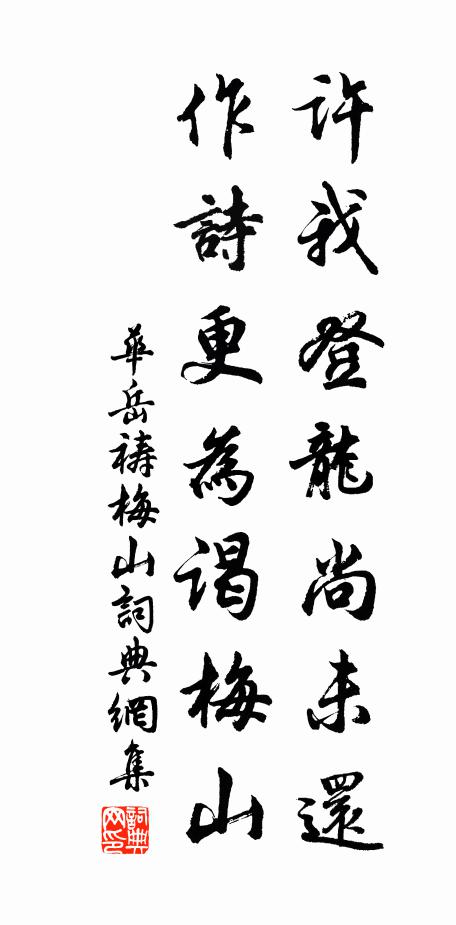 許我登龍尚未還
作詩更為謁梅山
華岳禱梅山詞典網集
詞典网印